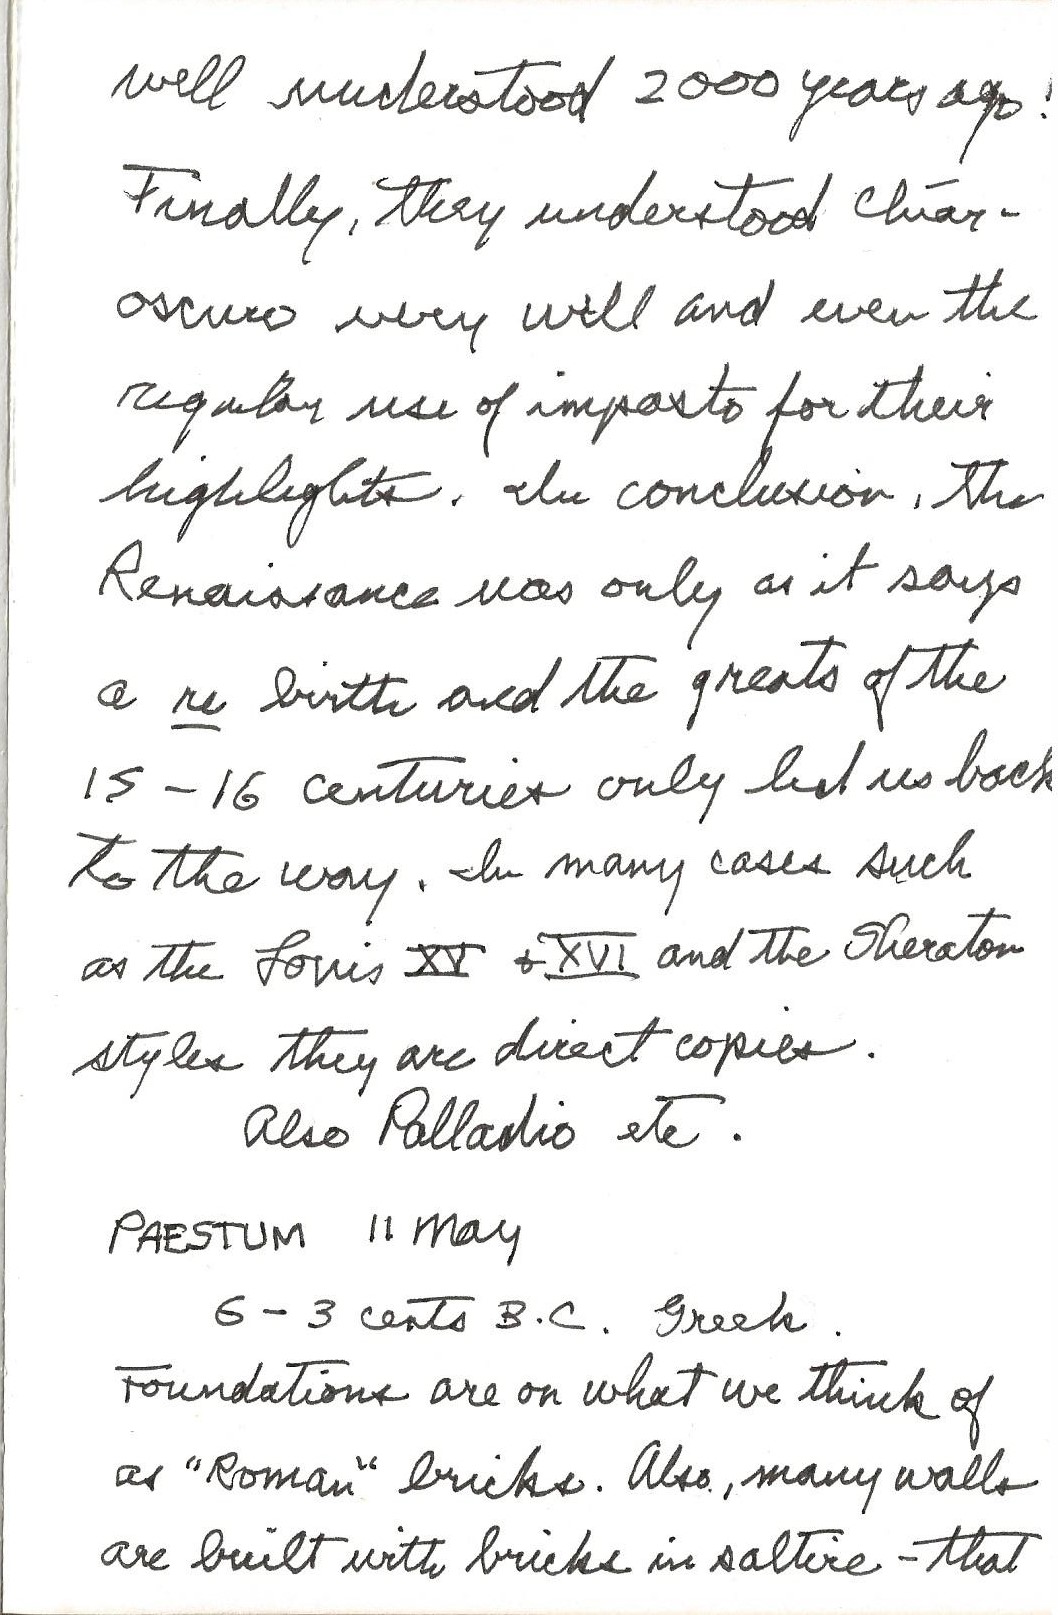 well understood 2000 years ago!
Finally, they understood chiar-
oscuro very well and even the
regular use of impasto for their
highlights. In conclusion, the
Renaissance was only as it says
a re birth and the greats of the
15 - 16 centuries only led us back
to the way. In many cases such
as the Louis XV & XVI and the Sheraton
styles they are direct copies.
Also Palladio etc.
PAESTUM 11 May
6 - 3 cents B.C. Greek.
Foundations are on what we think of
as "Roman" bricks. Also, many walls
are built with bricks in saltire - that